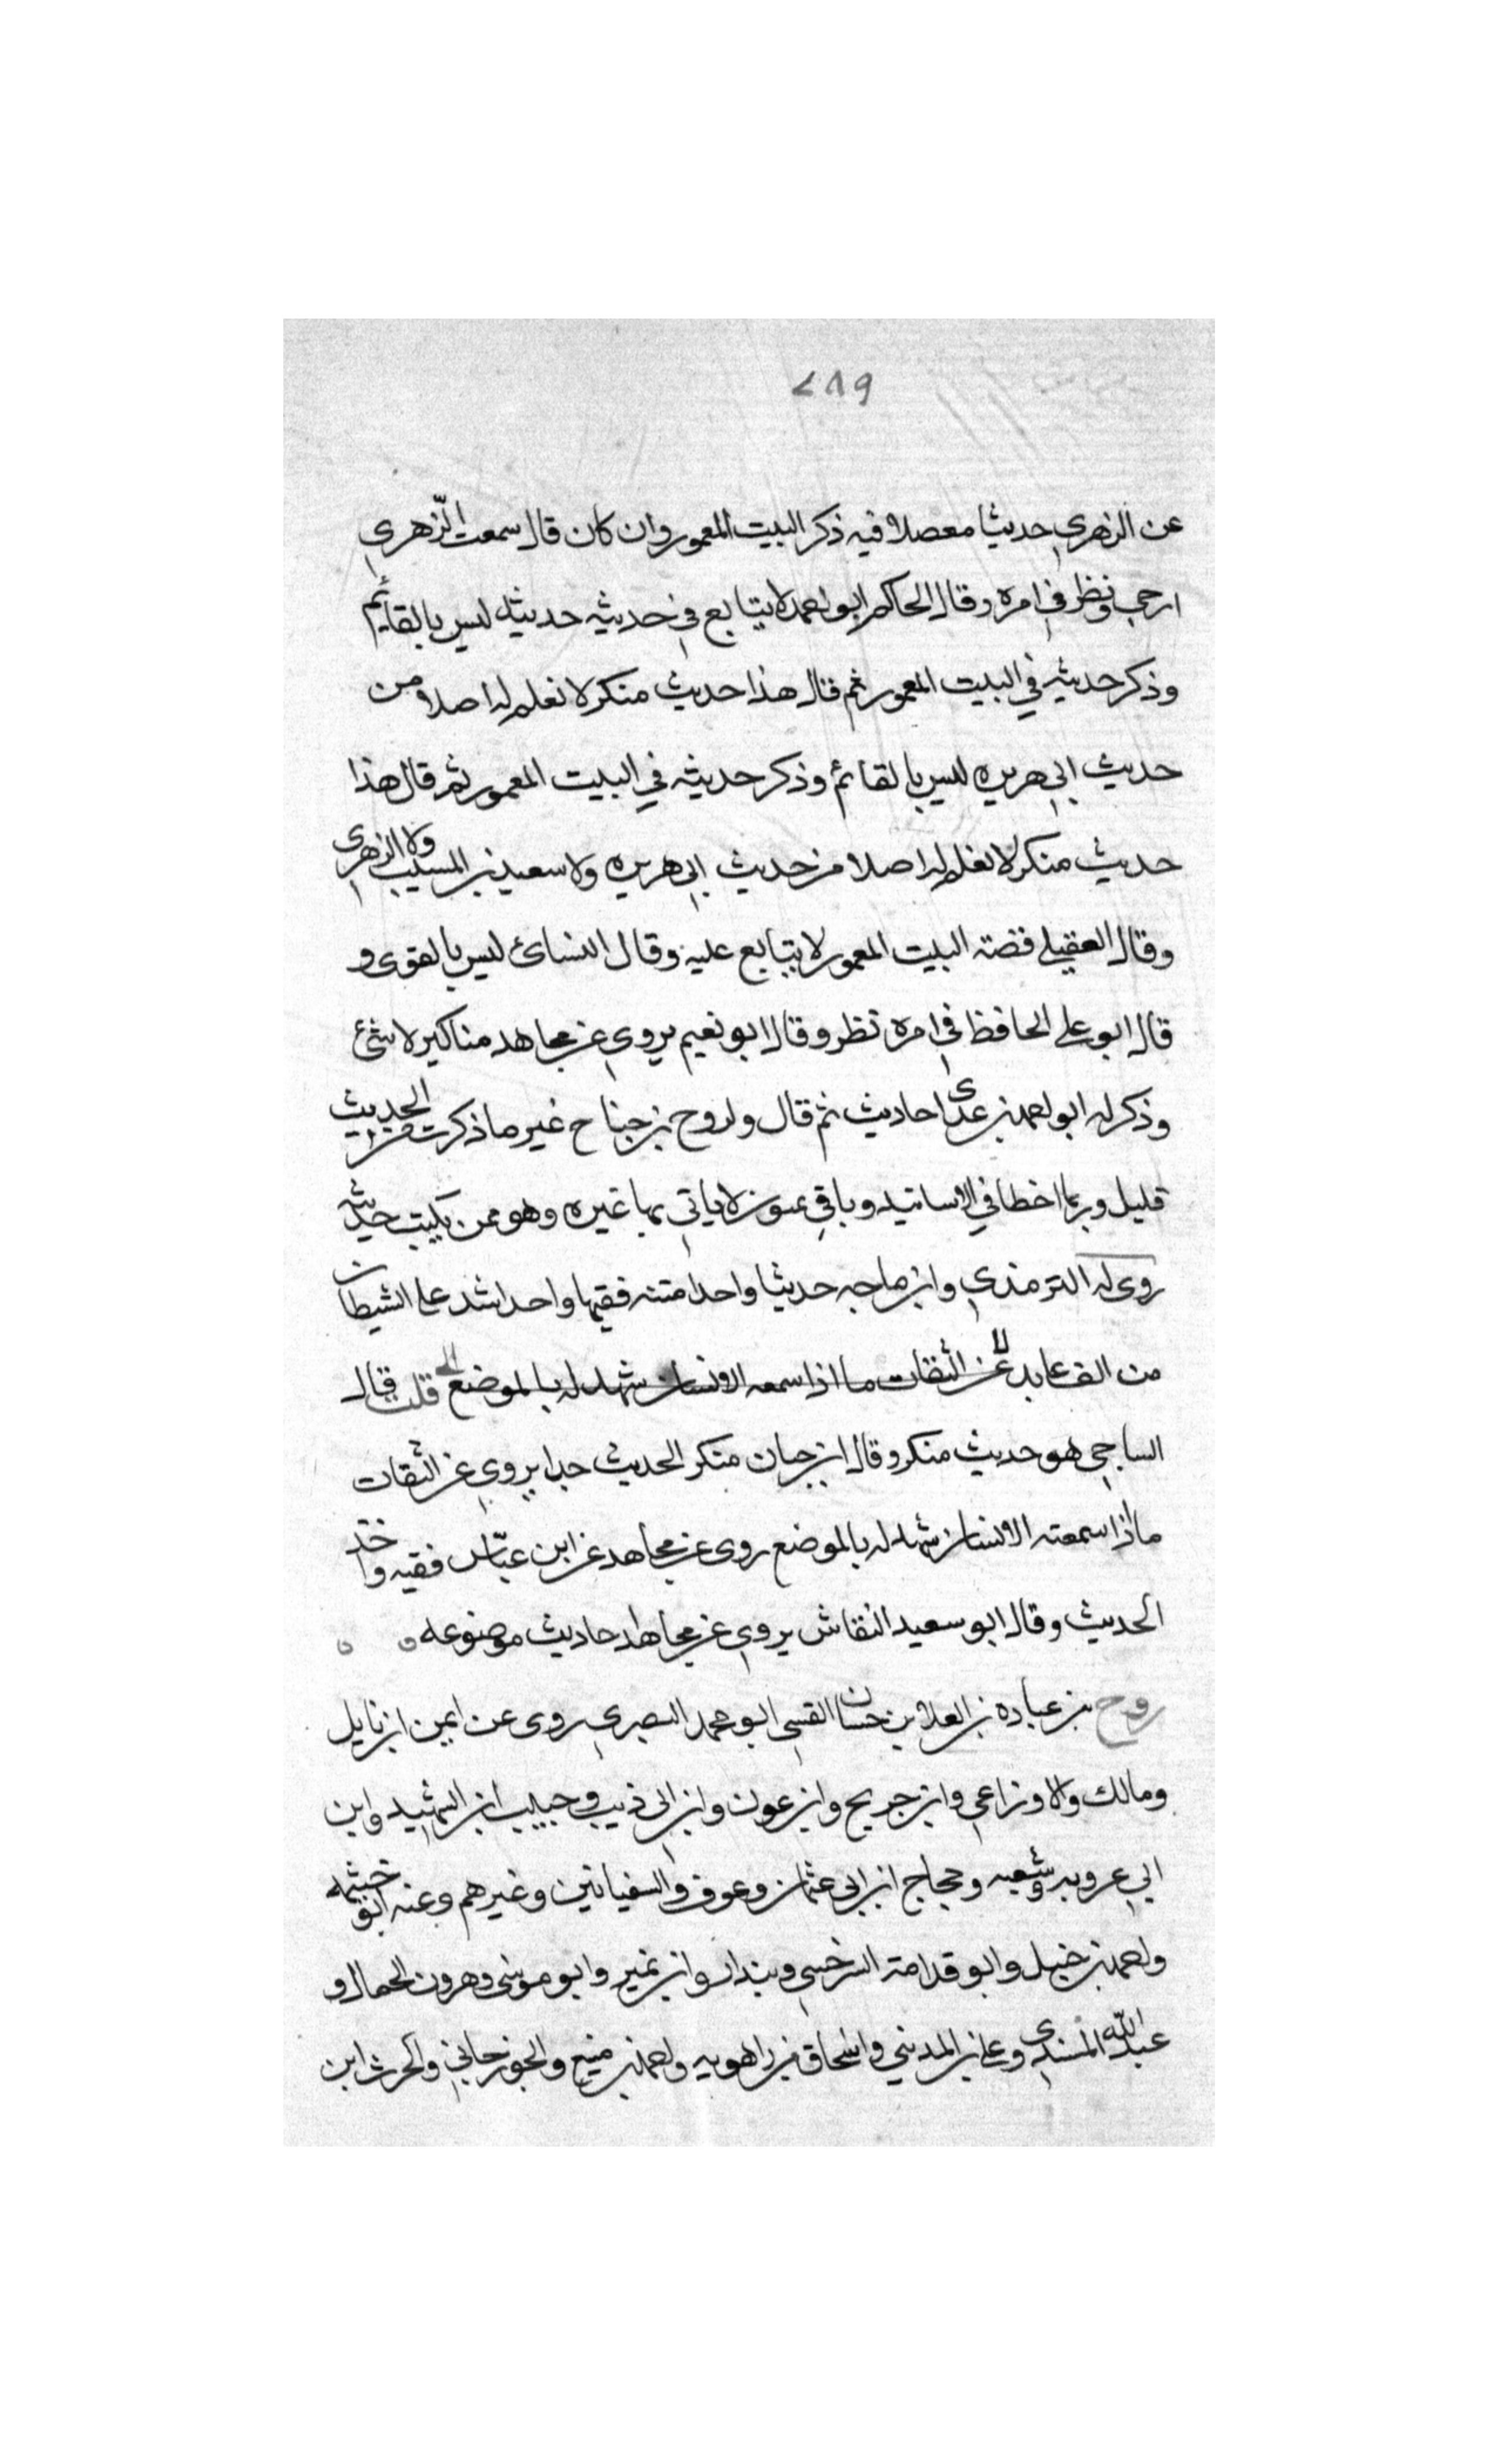 ٢٨٩
عن الزهري حديثا معضلا فيه ذكر البيت المعمور وان كان قال سمعت الزهري
ارجى ونظر في امره وقال الحاكم ابو احمد لا يتابع في حديثه حديثه ليس بالقائم
وذكر حديثه في البيت المعمور ثم قال هذا حديث منكر لا نعلم له اصلا من
حديث ابي هريره ليس بالقائم وذكر حديثه في البيت المعمور ثم قال هذا
حديث منكر لا نعلم له اصلا من حديث ابي هريره ولا سعيد بن المسيب ولا الزهرى
وقال العقيلي قصته البيت المعمور لا يتابع عليه وقال النسائ ليس بالقوى و
قال ابو على الحافظ في امره نظر وقال ابو نعيم يروى عن مجاهد مناكير لا شئ
وذكر له ابو احمد بن عدى احاديث ثم قال ولروح بن جناح غير ما ذكرت من الحديث
قليل وربما اخطا في الاسانيد وياتي بمتون لا ياتي بها غيره وهو ممن يكتب حديثه
روى له الترمذي وابن ماجه حديثا واحدا متنه فقيها واحد اشد على الشيطان
من الف عابد عن الثقات ما اذا سمعه الانسان شهد له بالموضع قلت قال
الساجي هو حديث منكر وقال ابن حبان منكر الحديث جدا يروى عن الثقات
ما اذا سمعته الانسان شهد له بالموضع روى عن مجاهد عن ابن عباس فقيه واحد
الحديث وقال ابو سعيد النقاش يروى عن مجاهد احاديث موضوعه ه ه
روح بن عباده بن العلا بن حسان القسي ابو محمد البصري روى عن ايمن ابن نايل
ومالك والاوزاعي وابن جريج وابن عون وابن ابي ذيب وحبيب ابن الشهيد وابن
ابي عروبه وشعبه وحجاج ابن ابي عثمان وعوف والسفيانين وغيرهم وعنه ابو خيثمه
واحمد بن حنبل وابو قدامة السرخسي وبندار وابن نمير وابو موسى وهرون الحمال و
عبد الله المسندى وعلى بن المديني واسحاق بن راهويه واحمد بن منيع والجوزجاني والحرث ابن